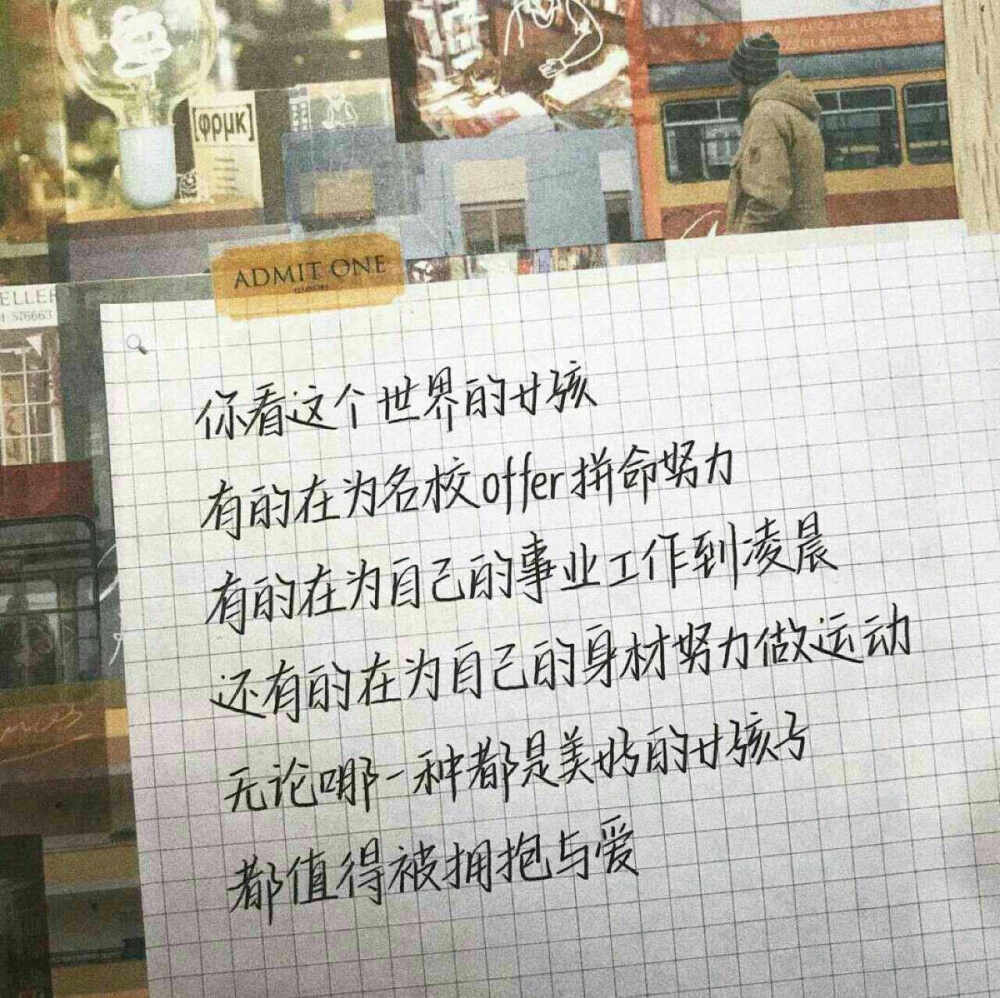 [φρμκ]
ADMIT ONE
ELLER
576663
你看这个世界的女孩
有的在为名校offer拼命努力
有的在为自己的事业工作到凌晨
还有的在为自己的身材努力做运动
无论哪一种都是美好的女孩子
都值得被拥抱与爱